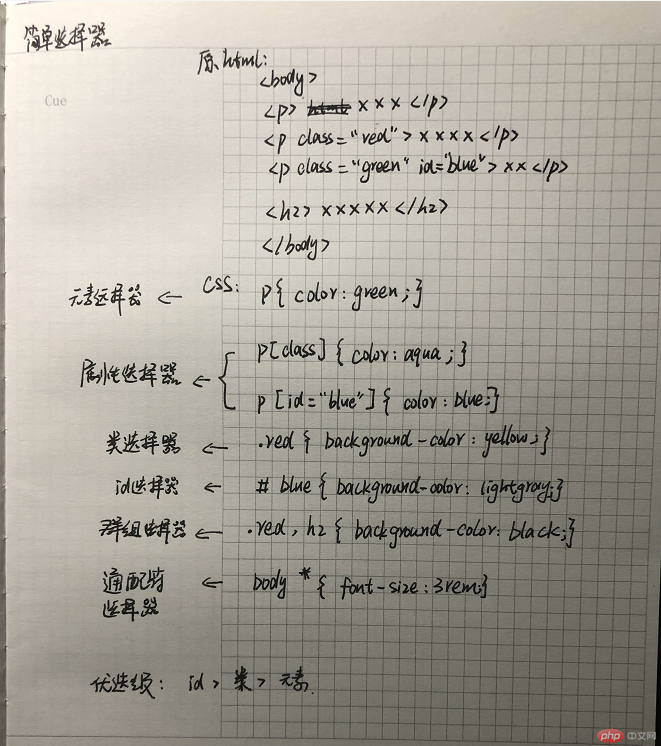 简单选择器
原html:
Cue
<body>
<p> xxx </p>
<p class="red"> xxxx </p>
<p class="green" id="blue"> xx </p>
<h2> xxxxx </h2>
</body>
元素选择器 ← CSS: p{ color: green; }
p[class] { color: aqua ; }
属性选择器 ←
p [id="blue"] { color : blue; }
类选择器 ← .red { background-color : yellow; }
id选择器 ← # blue { background-color: lightgray;}
群组选择器 ← .red, h2 { background-color: black; }
通配符 ← body * { font-size : 3rem;}
选择器
优选级: id > 类 > 元素.
php 中文网